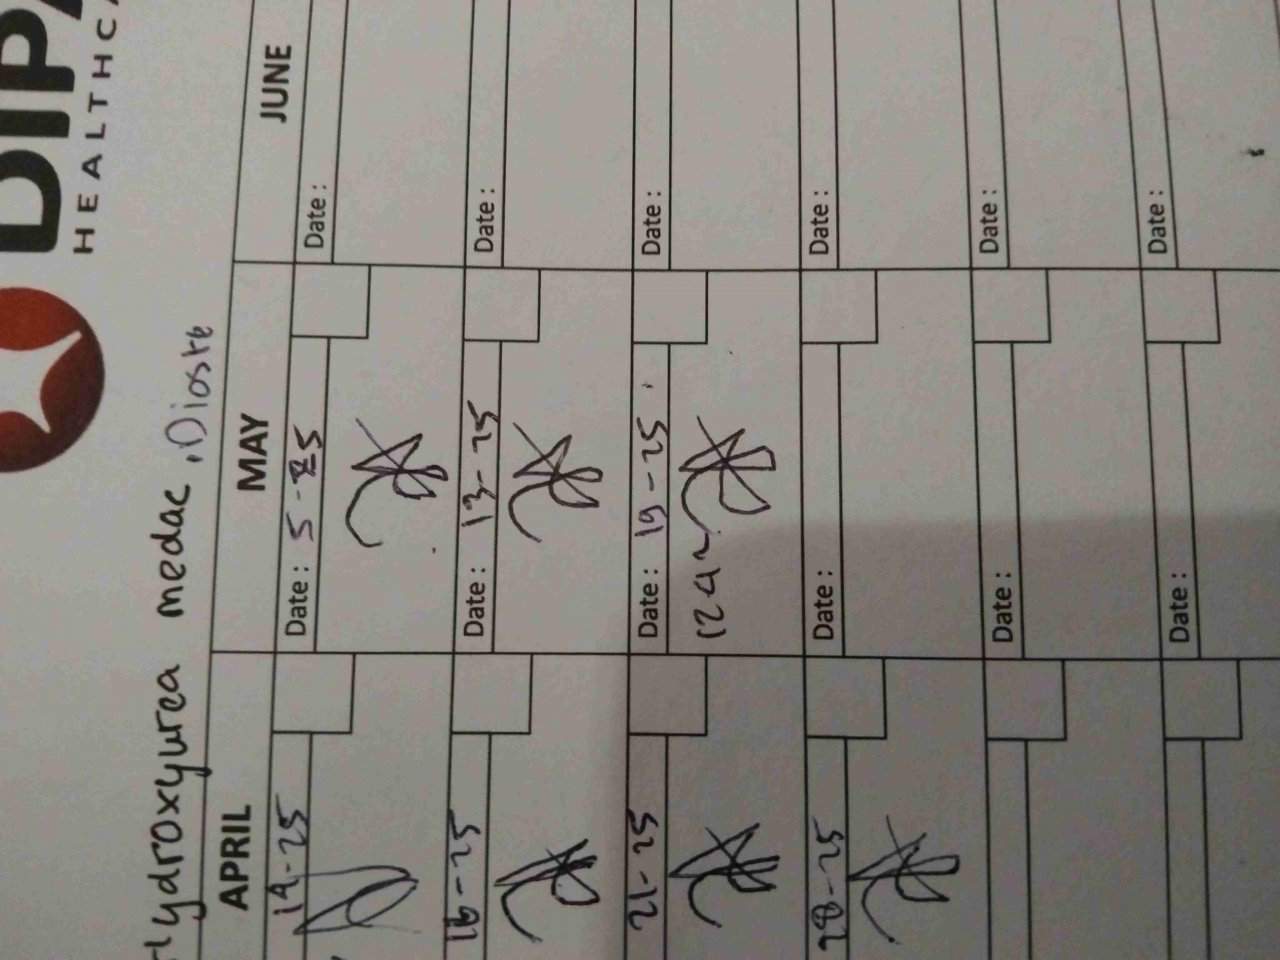 DIPA
HEALTHCA
Hydroxyurea medac, Dioste
APRIL
MAY
JUNE
14-25
Date : 5-25
Date :
16-25
Date : 13-25
Date :
21-25
Date : 19-25
Date :
28-25
Date :
Date :
Date :
Date :
Date :
Date :